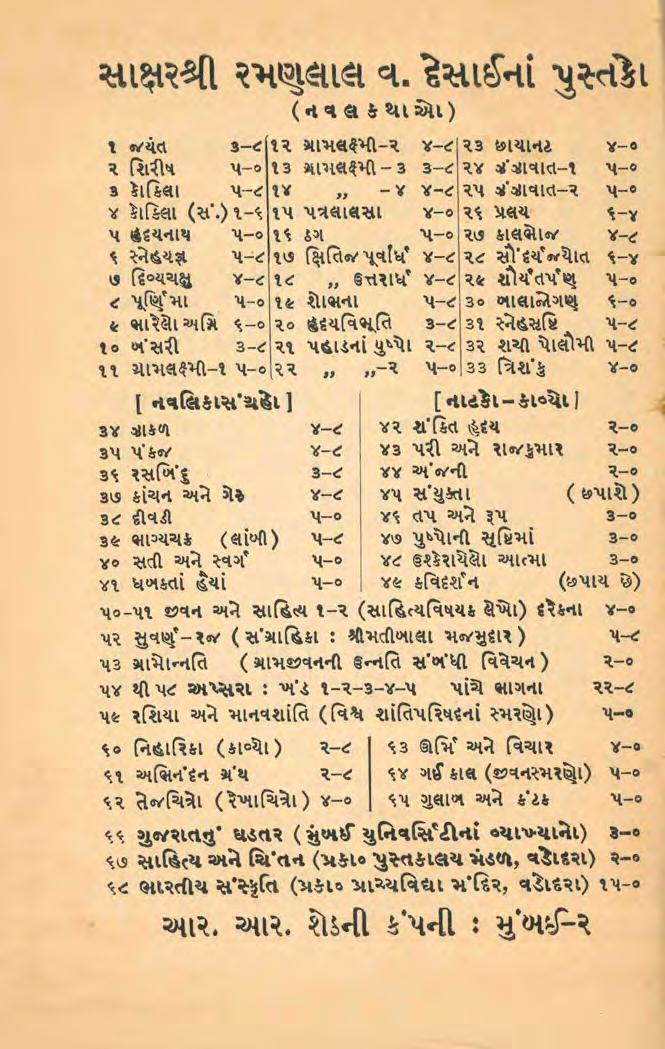 સાક્ષરશ્રી રમણલાલ વ. દેસાઈનાં પુસ્તકો
(નવલકથાઓ)
૧ જયંત ૩-૮ ૧૨ ગ્રામલક્ષ્મી-૨ ૪-૮ ૨૩ છાયાનટ ૪-૦
૨ શિરીષ ૫-૦ ૧૩ ગ્રામલક્ષ્મી-૩ ૩-૮ ૨૪ ઝંઝાવાત-૧ ૫-૦
૩ કોકિલા ૫-૮ ૧૪ ,, -૪ ૪-૮ ૨૫ ઝંઝાવાત-૨ ૫-૦
૪ કોકિલા (સં.) ૧-૬ ૧૫ પત્રલાલસા ૪-૦ ૨૬ પ્રલય ૬-૪
૫ હૃદયનાથ ૫-૦ ૧૬ ઠગ ૫-૦ ૨૭ કાલભોજ ૪-૮
૬ સ્નેહયજ્ઞ ૫-૮ ૧૭ ક્ષિતિજ પૂર્વાર્ધ ૪-૮ ૨૮ સૌંદર્યજ્યોત ૬-૪
૭ દિવ્યચક્ષુ ૪-૮ ૧૮ ,, ઉત્તરાર્ધ ૪-૮ ૨૯ શૌર્યતર્પણ ૫-૦
૮ પૂર્ણિમા ૫-૦ ૧૯ શોભના ૫-૮ ૩૦ બાલાજોગણ ૬-૦
૯ ભારેલો અગ્નિ ૬-૦ ૨૦ હૃદયવિભૂતિ ૩-૮ ૩૧ સ્નેહસૃષ્ટિ ૫-૮
૧૦ બંસરી ૩-૮ ૨૧ પહાડનાં પુષ્પો ૨-૮ ૩૨ શચી પૌલોમી ૫-૮
૧૧ ગ્રામલક્ષ્મી-૧ ૫-૦ ૨૨ ,, ,,-૨ ૫-૦ ૩૩ ત્રિશંકુ ૪-૦
[નવલિકાસંગ્રહો] [નાટકો-કાવ્યો]
૩૪ ઝાકળ ૪-૮ ૪૨ શંકિત હૃદય ૨-૦
૩૫ પંકજ ૪-૮ ૪૩ પરી અને રાજકુમાર ૨-૦
૩૬ રસબિંદુ ૩-૮ ૪૪ અંજની ૨-૦
૩૭ કાંચન અને ગેરુ ૪-૮ ૪૫ સંયુક્તા (છપાશે)
૩૮ દીવડી ૫-૦ ૪૬ તપ અને રૂપ ૩-૦
૩૯ ભાગ્યચક્ર (લાંબી) ૫-૮ ૪૭ પુષ્પોની સૃષ્ટિમાં ૩-૦
૪૦ સતી અને સ્વર્ગ ૫-૦ ૪૮ ઉશ્કેરાયેલો આત્મા ૩-૦
૪૧ ધબકતાં હૈયાં ૫-૦ ૪૯ કવિદર્શન (છપાય છે)
૫૦-૫૧ જીવન અને સાહિત્ય ૧-૨ (સાહિત્યવિષયક લેખો) દરેકના ૪-૦
૫૨ સુવર્ણ-રજ (સંગ્રાહિકા : શ્રીમતીબાલા મજમુદાર) ૫-૮
૫૩ ગ્રામોન્નતિ (ગ્રામજીવનની ઉન્નતિ સંબંધી વિવેચન) ૨-૦
૫૪ થી ૫૮ અપ્સરા : ખંડ ૧-૨-૩-૪-૫ પાંચે ભાગના ૨૨-૮
૫૯ રશિયા અને માનવશાંતિ (વિશ્વ શાંતિપરિષદનાં સ્મરણો) ૫-૦
૬૦ નિહારિકા (કાવ્યો) ૨-૮ ૬૩ ઊર્મિ અને વિચાર ૪-૦
૬૧ અભિનંદન ગ્રંથ ૨-૮ ૬૪ ગઈ કાલ (જીવનસ્મરણો) ૫-૦
૬૨ તેજચિત્રો (રેખાચિત્રો) ૪-૦ ૬૫ ગુલાબ અને કંટક ૫-૦
૬૬ ગુજરાતનું ઘડતર (મુંબઈ યુનિવર્સિટીનાં વ્યાખ્યાનો) ૩-૦
૬૭ સાહિત્ય અને ચિંતન (પ્રકા૦ પુસ્તકાલય મંડળ, વડોદરા) ૨-૦
૬૮ ભારતીય સંસ્કૃતિ (પ્રકા૦ પ્રાચ્યવિદ્યા મંદિર, વડોદરા) ૧૫-૦
આર. આર. શેઠની કંપની : મુંબઈ-૨